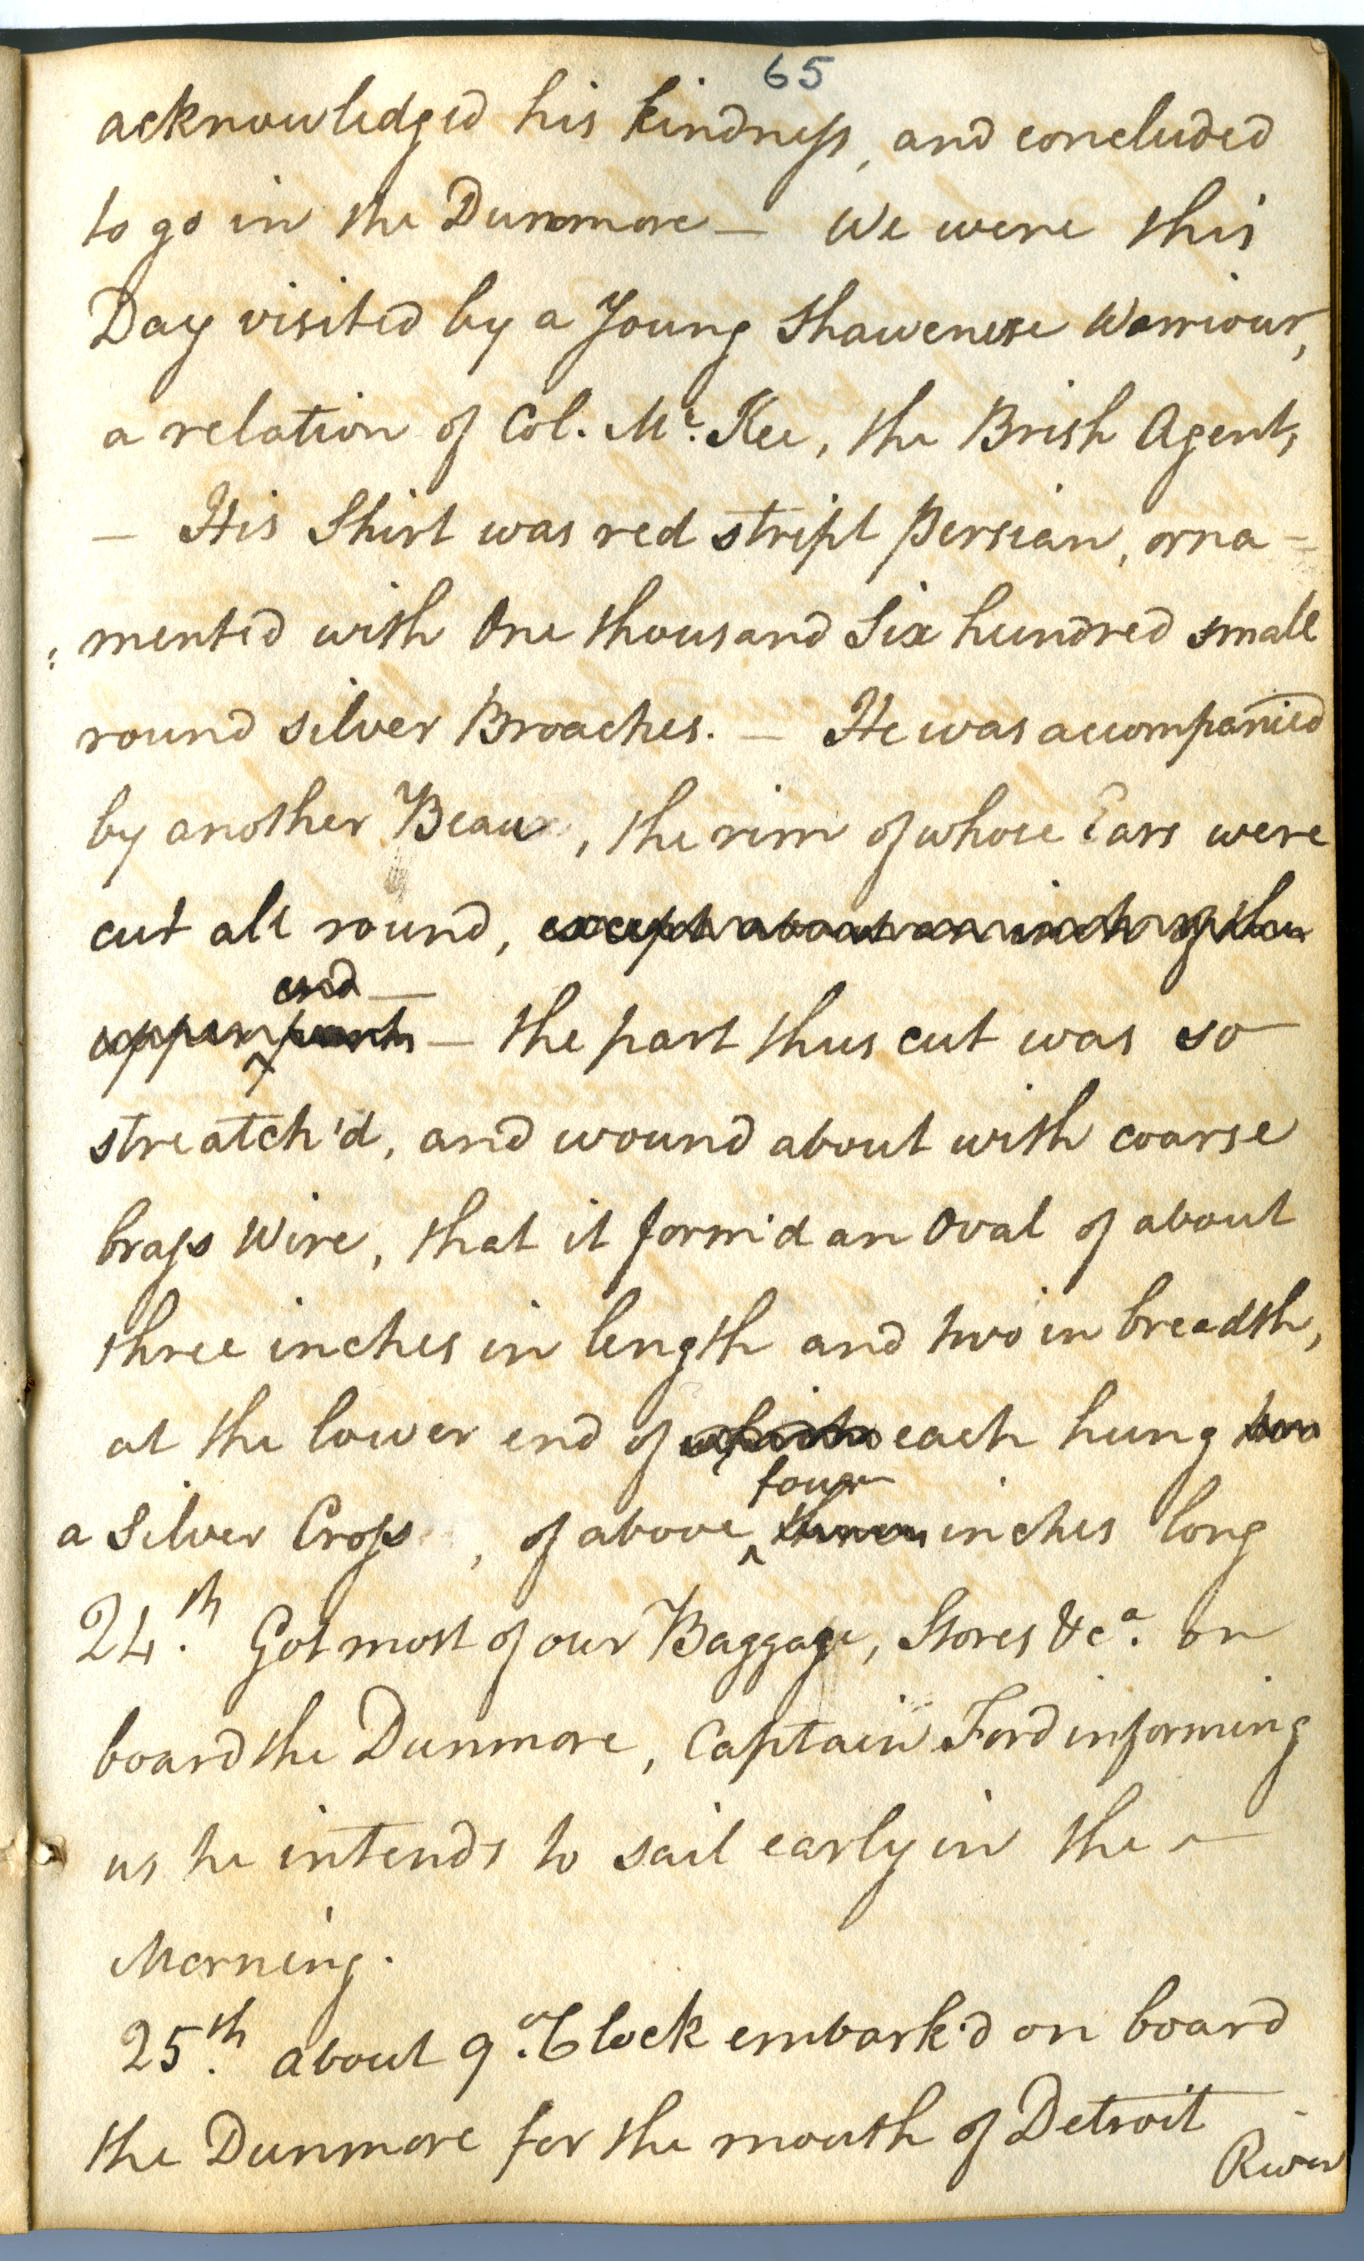 65
acknowledged his kindness, and concluded
to go in the Dunmore — We were this
Day visited by a Young Shawenese Warriour,
a relation of Col. Mc. Kee, the Brish Agent,
— His Shirt was red stript Persian, orna-
:mented with One thousand Six hundred small
round silver Broaches. — He was accompanied
by another Beau, the rim of whose Ears were
cut all round, except about an inch of the
end —
upper part — the part thus cut was so
streatch'd, and wound about with coarse
brass Wire, that it form'd an Oval of about
three inches in length and two in breadth,
at the lower end of which each hung two
four
a Silver Cross, of above ^ three inches long
24.th Got most of our Baggage, Stores &c.a on
board the Dunmore, Captain Ford informing
us he intends to sail early in the —
Morning.
25.th about 9 o'Clock embark'd on board
the Dunmore for the mouth of Detroit
River